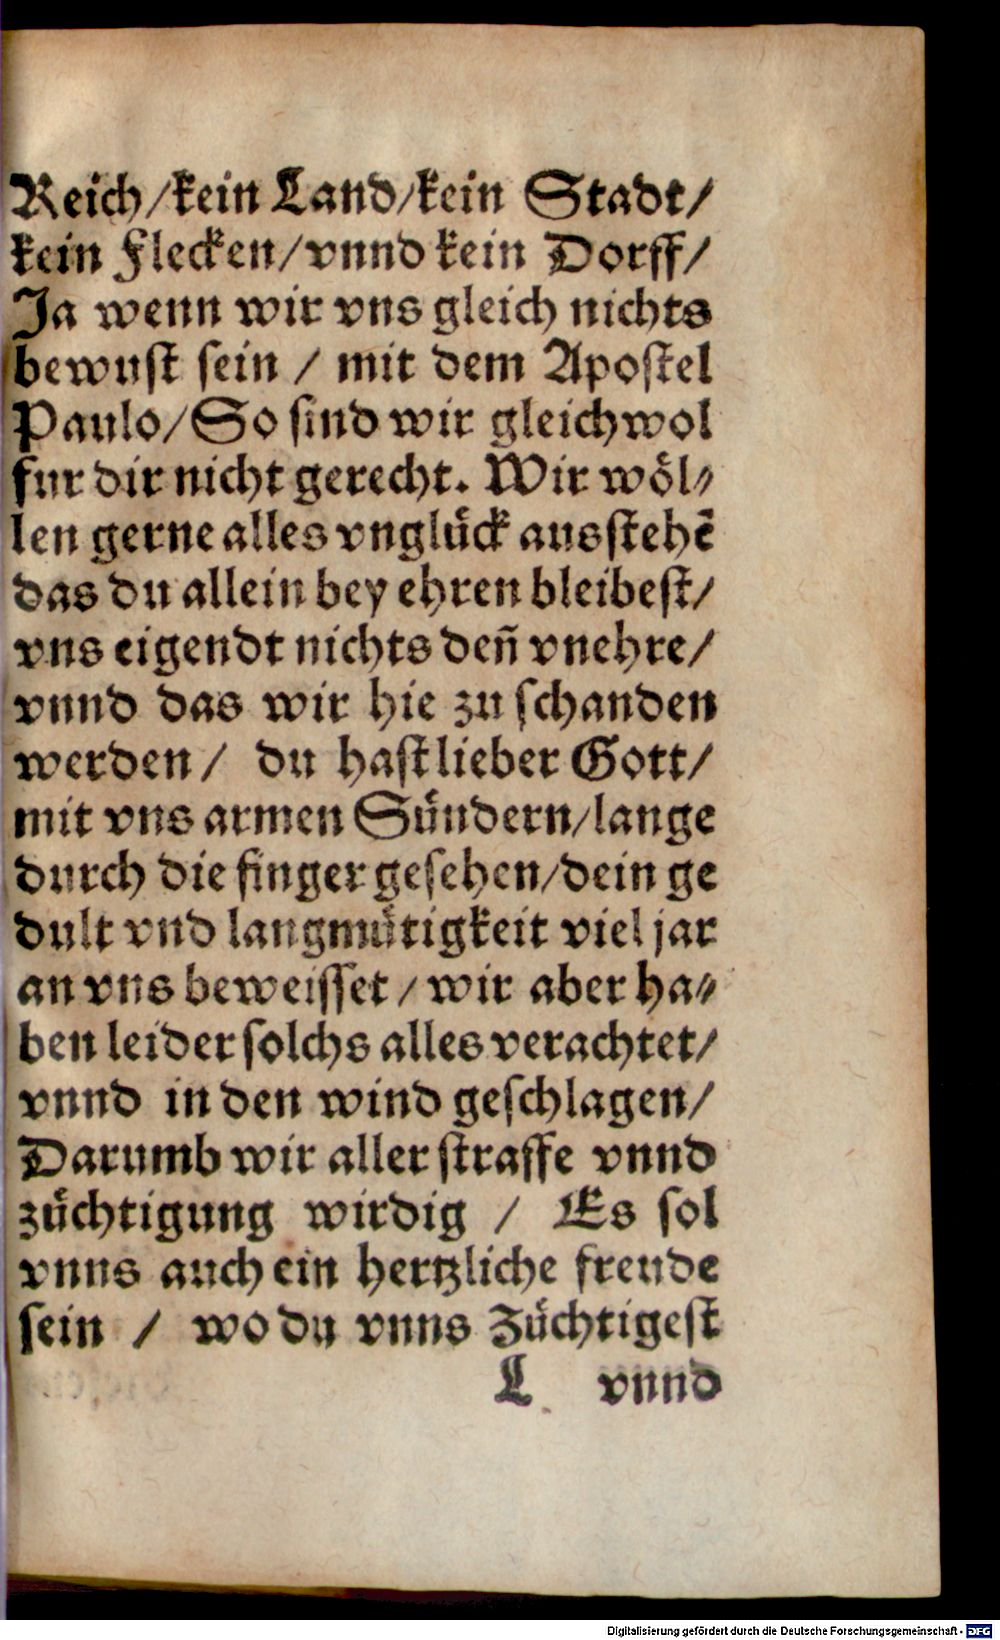 Reich/kein Land/kein Stadt/
kein Flecken/vnnd kein Dorff/
Ja wenn wir vns gleich nichts
bewust sein / mit dem Apostel
Paulo/So sind wir gleichwol
fur dir nicht gerecht. Wir wöl⸗
len gerne alles vnglück ausstehē
das du allein bey ehren bleibest/
vns eigendt nichts deñ vnehre/
vnnd das wir hie zu schanden
werden/ du hast lieber Gott/
mit vns armen Sündern/lange
durch die finger gesehen/dein ge
dult vnd langmütigkeit viel jar
an vns beweisset/wir aber ha⸗
ben leider solchs alles verachtet/
vnnd in den wind geschlagen/
Darumb wir aller straffe vnnd
züchtigung wirdig / Es sol
vnns auch ein hertzliche freude
sein / wo du vnns Züchtigest
L vnnd
Digitalisierung gefördert durch die Deutsche Forschungsgemeinschaft - DFG